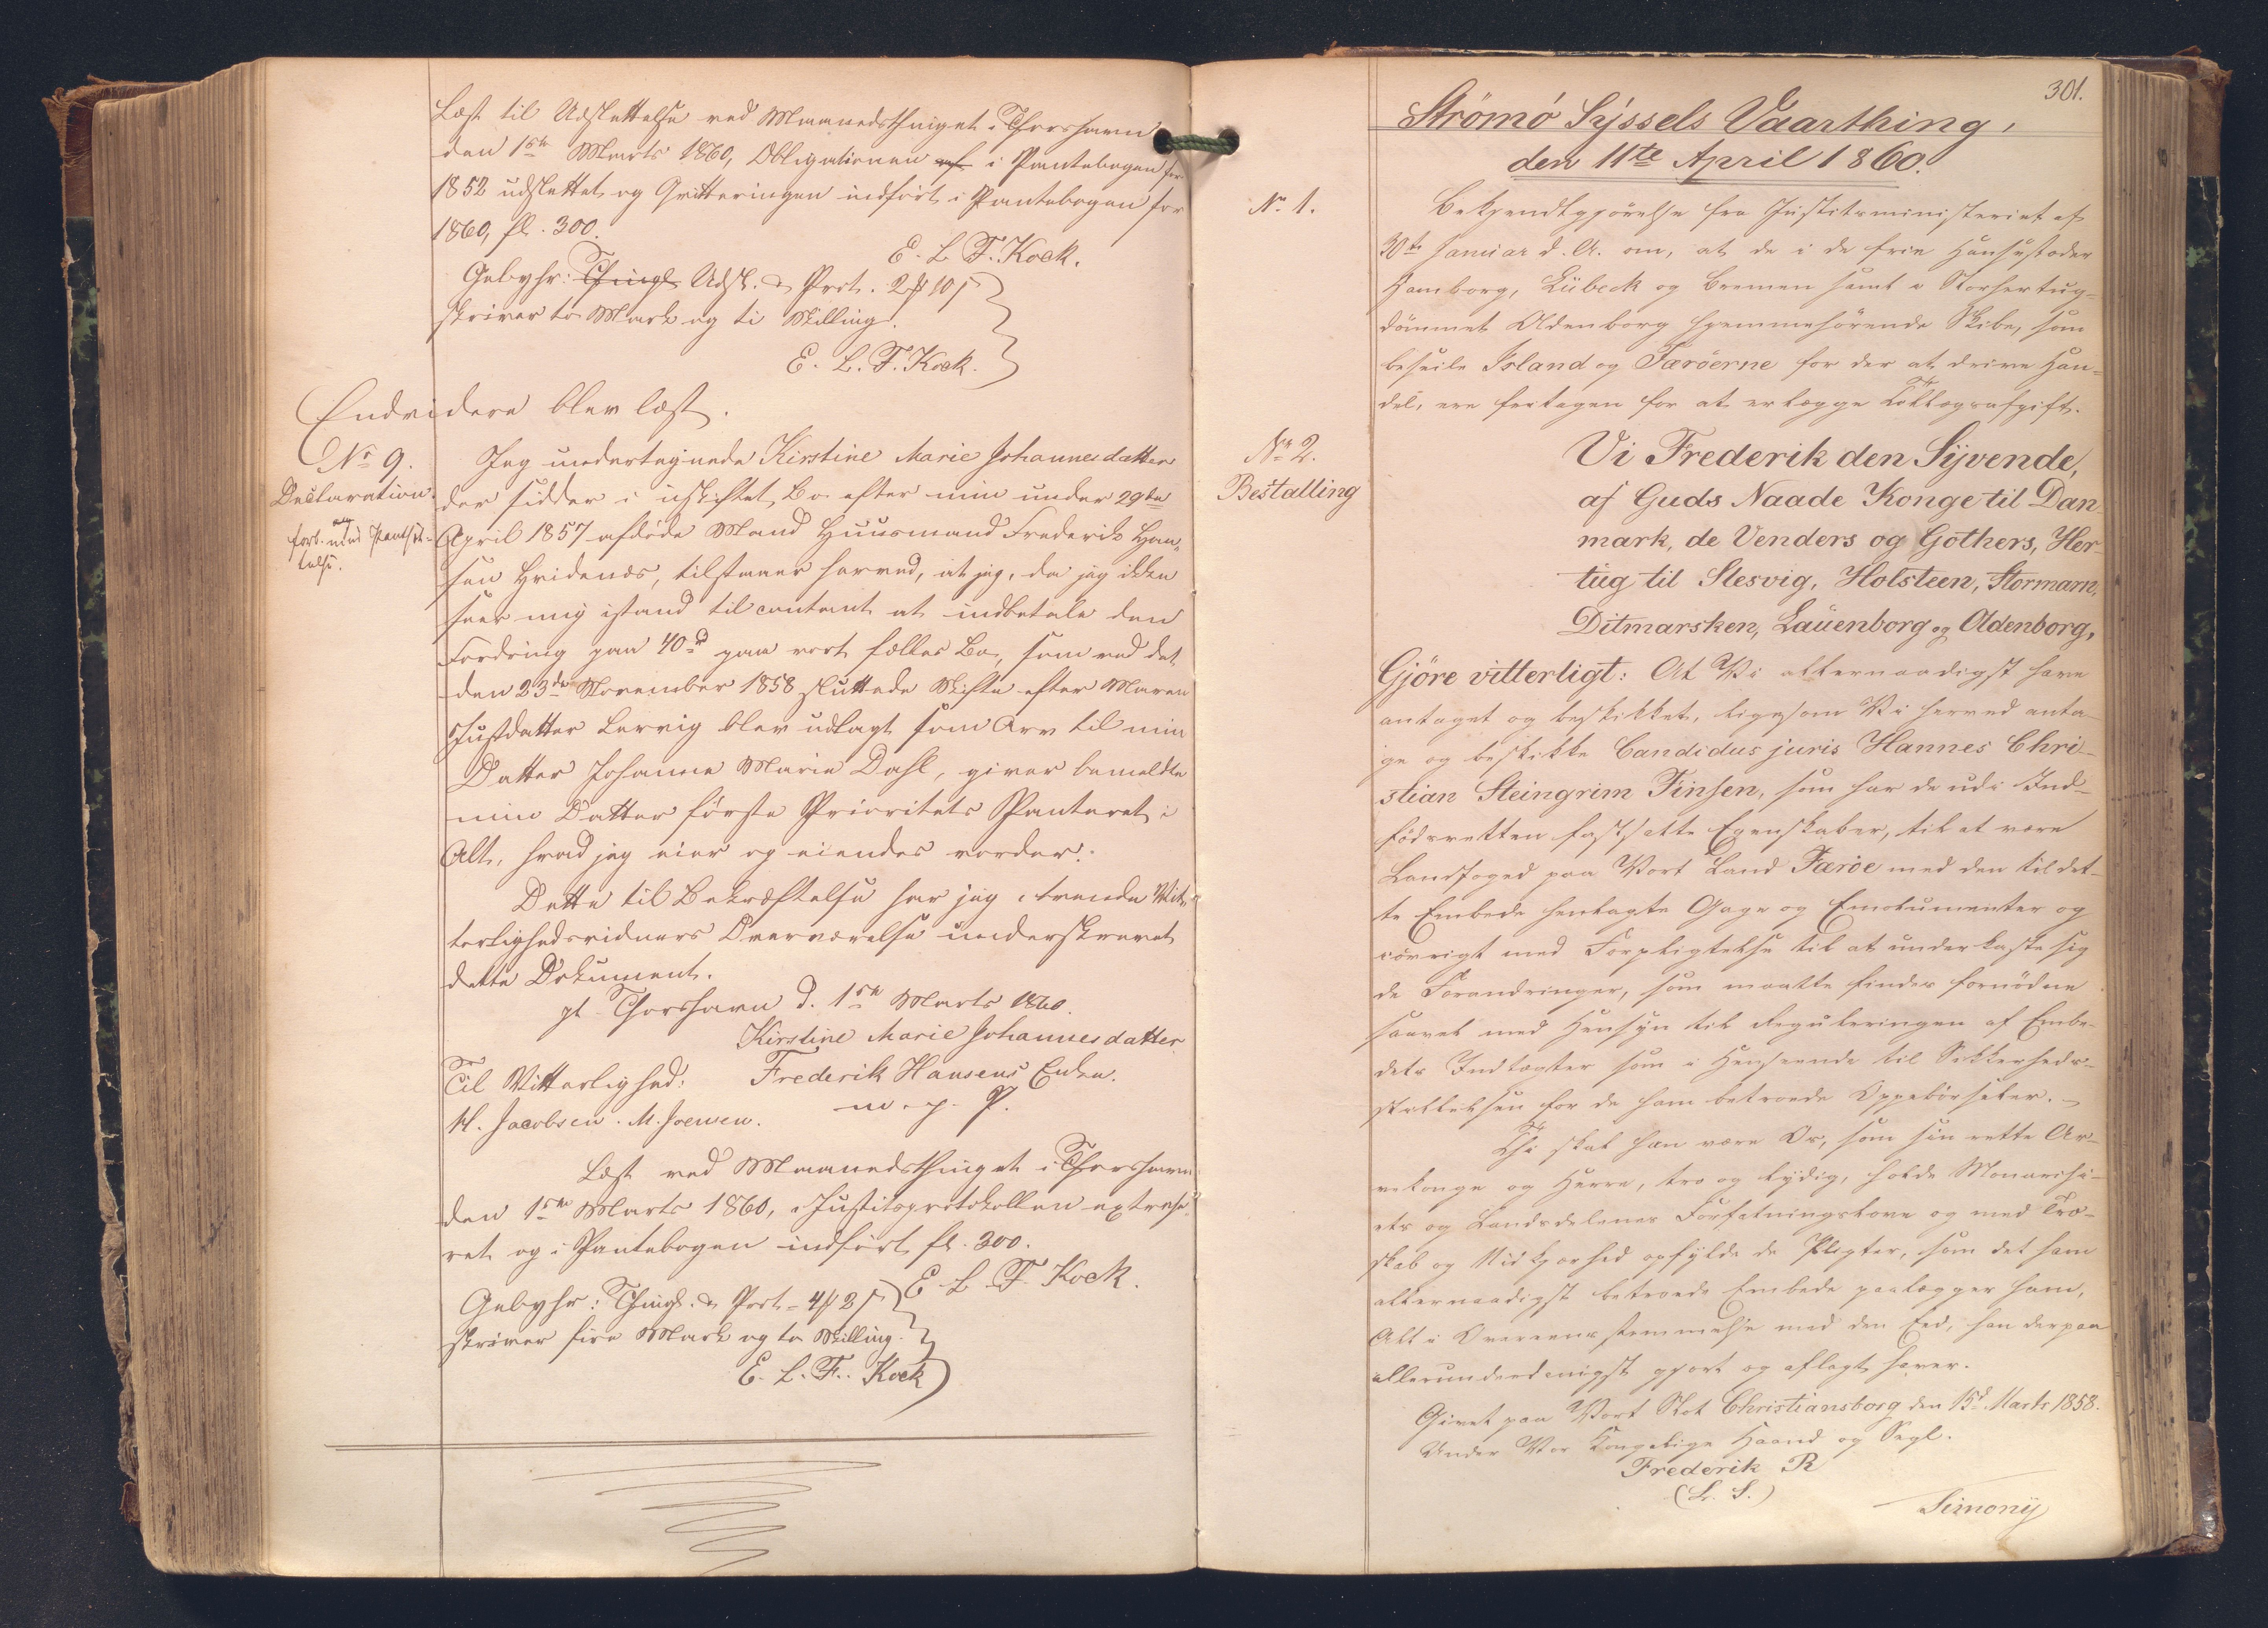 Læst til Udslettelse ved Maanedsthinget i Thorshavn
den 1ste Marts 1860, Obligationen af i Pantebogen for
1852 udslettet og Qvitteringen indført i Pantebogen for
1860, fl. 300.
E. L. F. Kock.
Gebyhr: Thingl. Udsl. & Prot. 2 ₻ 10 ſ
skriver to Mark og ti Skilling.
E. L. F. Kock.
Endvidere blev læst.
No 9.
Declaration
forb. med Pantsæt-
telse.
Jeg undertegnede Kirstine Marie Johannesdatter
der sidder i uskiftet Bo efter min under 29de
April 1857 afdøde Mand Huusmand Frederik Han-
sen Hvidenæs, tilstaaer herved, at jeg, da jeg ikke
seer mig istand til contant at indbetale den
Fordring paa 40 rd paa vort fælles Bo, som ved det
den 23de November 1858 sluttede Skifte efter Maren
Justdatter Lervig blev udlagt som Arv til min
Datter Johanne Marie Dahl, giver bemeldte
min Datter første Prioritets Panteret i
Alt, hvad jeg eier og eiendes vorder.
Dette til Bekræftelse har jeg i tvende Vit-
terlighedsvidners Overværelse underskrevet
dette Dokument.
pt. Thorshavn d. 1ste Marts 1860.
Kirstine Marie Johannesdatter
Til Vitterlighed: Frederik Hansens Enke.
H. Jacobsen. M. Joensen. m. p. P.
Læst ved Maanedsthinget i Thorshavn
den 1ste Marts 1860, i Justitsprotokollen extrahe-
ret og i Pantebogen indført fl. 300.
E. L. F. Kock.
Gebyhr: Thingl. & Prot. - 4 ₻ 2 ſ
skriver fire Mark og to Skilling.
E. L. F. Kock
301.
Strömö Syssels Vaarthing,
den 11te April 1860.
No 1.
Bekjendtgjørelse fra Justitsministeriet af
30te Januar d. A. om, at de i de frie Hansestæder
Hamborg, Lübeck og Bremen samt i Storhertug-
dömmet Oldenborg hjemmehörende Skibe, som
beseile Island og Færöerne for der at drive Han-
del, ere fritagen for at erlægge Töldægsafgift.
No 2.
Bestalling
Vi Frederik den Syvende,
af Guds Naade Konge til Dan-
mark, de Venders og Gothers, Her-
tug til Slesvig, Holsteen, Stormarn,
Ditmarsken, Lauenborg og Oldenborg,
Gjöre vitterligt: At Vi allernaadigst have
antaget og beskikket, ligesom Vi herved anta-
ge og beskikke Candidus juris Hannes Chri-
stian Steingrim Finsen, som har de udi Ind-
födsretten fastsatte Egenskaber, til at være
Landfoged paa Vort Land Færöe med den til det-
te Embede henlagte Gage og Emolumenter og
iövrigt med Forpligtelse til at underkaste sig
de Forandringer, som maatte findes fornödne
saavel med Hensyn til Reguleringen af Embe-
dets Indtægter som i Henseende til Sikkerheds-
stillelsen for de ham betroede Oppebörseler.
Thi skal han være Os, som sin rette Ar-
vekonge og Herre, tro og lydig, holde Monarchi-
ets og Landsdelenes Forfatningslove og med Tro-
skab og Nidkjærhed opfylde de Pligter, som det ham
allernaadigst betroede Embede paalægger ham,
Alt i Overeensstemmelse med den Eed, han derpaa
allerunderdanigst gjort og aflagt haver.
Givet paa Vort Slot Christiansborg den 15d Marts 1858.
Under Vor Kongelige Haand og Segl.
Frederik R
(L. S.)
Simony